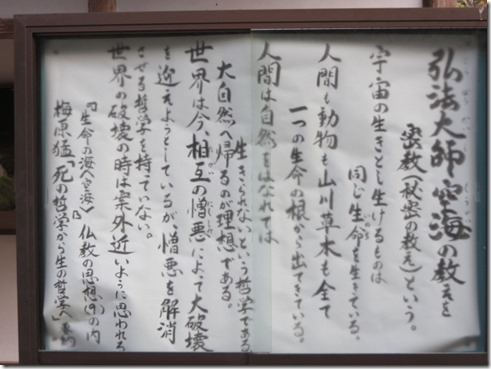 弘法大師空海の教えを
密教（秘密の教え）という。
宇宙の生きとし生けるものは
同じ生命を生きている。
人間も動物も山川草木も全て
一つの生命の根から出てきている。
人間は自然をはなれては
生きられないという哲学である
大自然へ帰るのが理想である。
世界は今、相互の憎悪によって大破壊
を迎えようとしているが、憎悪を解消
させる哲学を持っていない。
世界の破壊の時は案外近いように思われる
『生命の海〈空海〉』仏教の思想(9)の内
梅原猛「死の哲学から生の哲学へ」